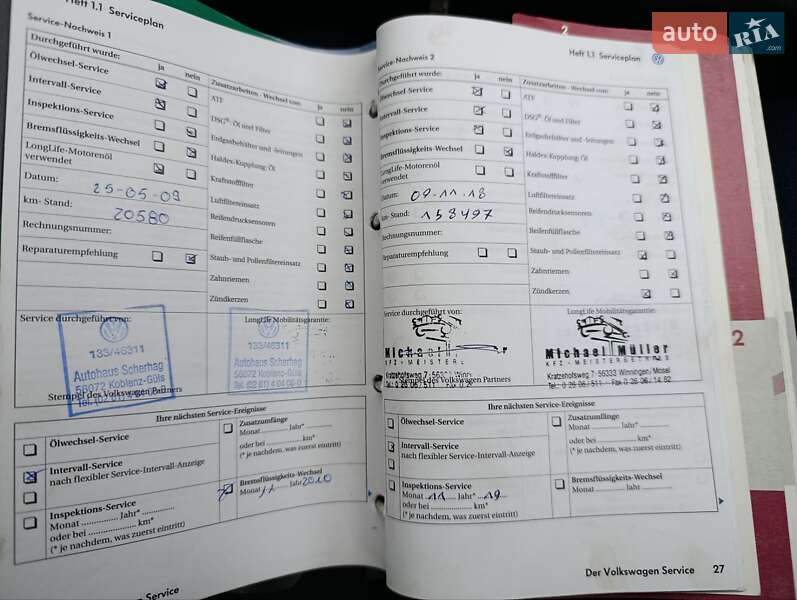 auto RIA .com
2
Heft 1.1 Serviceplan
Service-Nachweis 1
Durchgeführt wurde: ja nein
Ölwechsel-Service
Intervall-Service
Inspektions-Service
Bremsflüssigkeits-Wechsel
LongLife-Motorenöl
verwendet
Datum: 25-05-09
km- Stand: 20580
Rechnungsnummer:
Reparaturempfehlung
Zusatzarbeiten - Wechsel von: ja nein
ATF
DSG®- Öl und Filter
Erdgasbehälter und -leitungen
Haldex-Kupplung: Öl
Kraftstofffilter
Luftfiltereinsatz
Reifendrucksensoren
Reifenfüllflasche
Staub- und Pollenfiltereinsatz
Zahnriemen
Zündkerzen
Service durchgeführt von:
LongLife Mobilitätsgarantie:
133/46311
Autohaus Scherhag
56072 Koblenz-Güls
133/46311
Autohaus Scherhag
56072 Koblenz-Güls
Stempel des Volkswagen Partners
Ihre nächsten Service-Ereignisse
Ölwechsel-Service
Intervall-Service
nach flexibler Service-Intervall-Anzeige
Inspektions-Service
Monat .............. Jahr* ..............
oder bei .................... km*
(* je nachdem, was zuerst eintritt)
Zusatzumfänge
Monat .......... Jahr* ..........
oder bei .............. km*
(* je nachdem, was zuerst eintritt)
Bremsflüssigkeits-Wechsel
Monat 11 Jahr 2010
Service
Service-Nachweis 2
Heft 1.1 Serviceplan
Durchgeführt wurde: ja nein
Ölwechsel-Service
Intervall-Service
Inspektions-Service
Bremsflüssigkeits-Wechsel
LongLife-Motorenöl
verwendet
Datum: 09-11-18
km- Stand: 158497
Rechnungsnummer:
Reparaturempfehlung
Zusatzarbeiten - Wechsel von: ja nein
ATF
DSG®- Öl und Filter
Erdgasbehälter und -leitungen
Haldex-Kupplung: Öl
Kraftstofffilter
Luftfiltereinsatz
Reifendrucksensoren
Reifenfüllflasche
Staub- und Pollenfiltereinsatz
Zahnriemen
Zündkerzen
Service durchgeführt von:
LongLife Mobilitätsgarantie:
Michael
KFZ-MEISTER
Kratzehofsweg 7 · 56333 Winningen
Michael Müller
KFZ-MEISTERBETRIEB
Kratzehofsweg 7 · 56333 Winningen/Mosel
Stempel des Volkswagen Partners
Ihre nächsten Service-Ereignisse
Ölwechsel-Service
Intervall-Service
nach flexibler Service-Intervall-Anzeige
Inspektions-Service
Monat 11 Jahr* 19
oder bei .................... km*
(* je nachdem, was zuerst eintritt)
Zusatzumfänge
Monat .......... Jahr* ..........
oder bei .............. km*
(* je nachdem, was zuerst eintritt)
Bremsflüssigkeits-Wechsel
Monat .......... Jahr ..........
Der Volkswagen Service 27
2